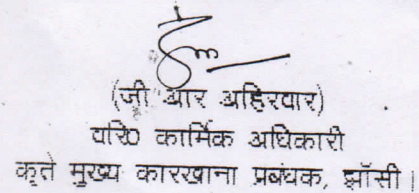 (जी आर अहिरवार)
वरि० कार्मिक अधिकारी
कृते मुख्य कारखाना प्रबंधक, झाँसी।